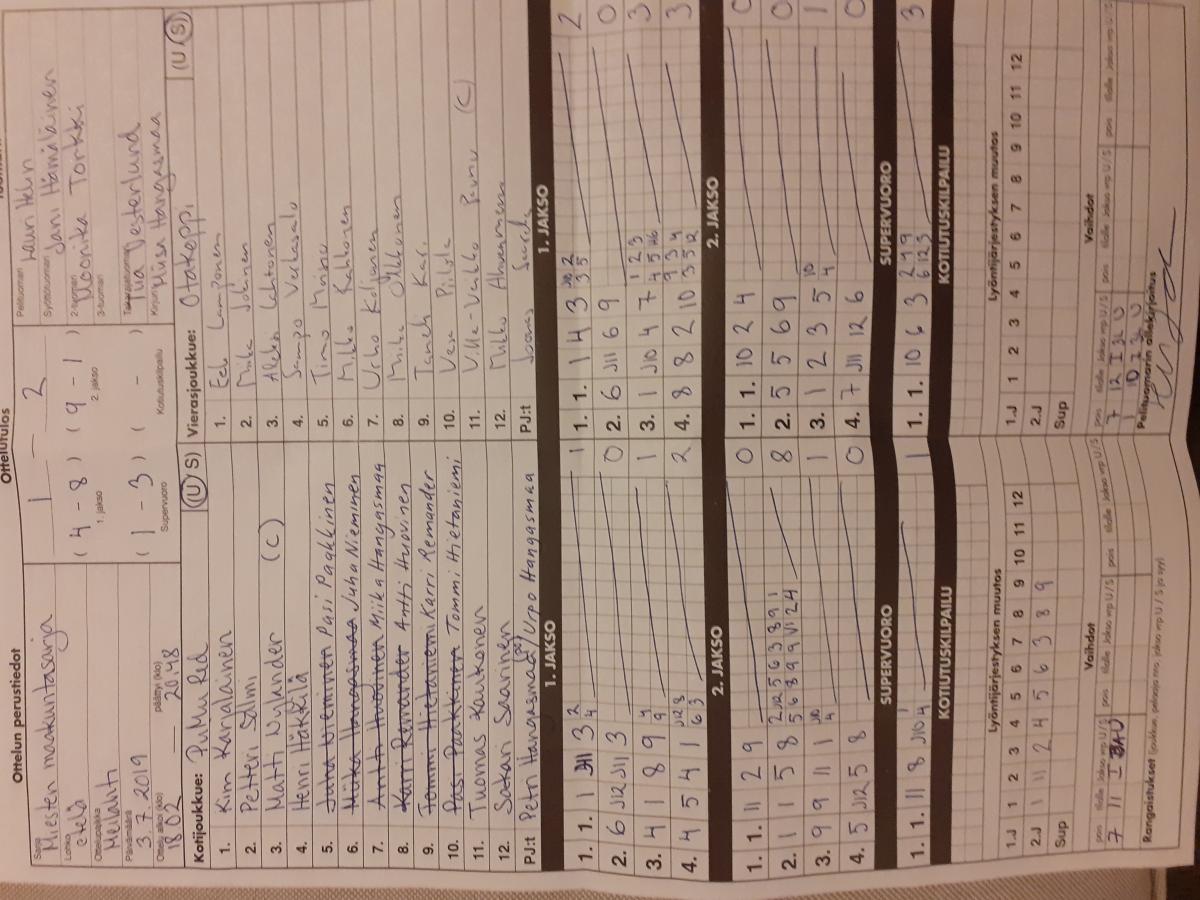 Ottelun perustiedot
Sarja
Miesten maakuntasarja
Lohko
Etelä
Ottelupaikka
Meilahti
Päivämäärä
3.7.2019
Ottelu alkoi (klo) päättyi (klo)
18.02 — 20.48
Ottelutulos
1 — 2
( 4 - 8 ) ( 9 - 1 )
1. jakso 2. jakso
( 1 - 3 ) ( - )
Supervuoro Kotiutuskilpailu
Pelituomari
Syöttötuomari Jani Hämäläinen
2-tuomari Noorika Torkki
3-tuomari
Takatuomari
Kirjuri Miisa Hangasmaa
Kotijoukkue: PuMu Red (U S)
1. Kim Karjalainen
2. Petteri Salmi
3. Matti Nylander (C)
4. Henri Häkkilä
5. Juha Nieminen Pasi Paakkinen
6. Miika Hangasmaa Juha Nieminen
7. Antti Huovinen Miika Hangasmaa
8. Karri Remander Antti Huovinen
9. Tommi Hietaniemi Karri Remander
10. Pasi Paakkinen Tommi Hietaniemi
11. Tuomas Kaukonen
12. Sakari Saarinen
PJ:t Petri Hangasmaa / Urpo Hangasmaa
Vierasjoukkue: Otakoppi (U S)
1. Eek Lamponen
2. Mika
3. Aleksi Lehtonen
4. Sampo
5. Timo
6. Mikko
7. Urho
8. Mika
9. Taneli
10.
11. Ville-Veikko (C)
12. Mikko Ahvenainen
PJ:t Joonas
1. JAKSO
1. 1. 1 J11 3 2 4 1
2. 6 J12 J11 3 0
3. 4 1 8 9 4 9 1
4. 4 5 4 1 J12 8 6 3 2
2. JAKSO
1. 1. 11 2 9 0
2. 1 1 5 8 2 J12 5 6 3 8 9 1 5 6 8 9 9 V1 2 4 8
3. 9 9 11 1 J10 4 1
4. 5 J12 5 8 0
SUPERVUORO
1. 1. 11 8 J10 1 4 1
KOTIUTUSKILPAILU
1. JAKSO
1. 1. 1 4 3 J10 2 3 5 2
2. 6 J11 6 9 0
3. 1 J10 4 7 1 2 3 4 5 J6 3
4. 8 8 2 10 9 3 4 3 5 12 3
2. JAKSO
1. 1. 10 2 4 0
2. 5 5 6 9 0
3. 1 2 3 5 10 4 1
4. 7 J11 12 6 0
SUPERVUORO
1. 1. 10 6 3 2 9 6 12 3 3
KOTIUTUSKILPAILU
Lyöntijärjestyksen muutos
1.J 1 2 3 4 5 6 7 8 9 10 11 12
2.J 1 11 2 4 5 6 3 8 9
Sup
Vaihdot
pois tilalle Jakso vrp U / S pois tilalle Jakso vrp U / S pois
7 11 I
Rangaistukset (joukkue, pelaaja nro, jakso vrp U / S ja syy)
Lyöntijärjestyksen muutos
1.J 1 2 3 4 5 6 7 8 9 10 11 12
2.J
Sup
Vaihdot
pois tilalle Jakso vrp U / S pois tilalle Jakso vrp U / S pois tilalle Jakso vrp U / S
7 12 I 3L U
1 10 I 3L U
Pelituomarin allekirjoitus